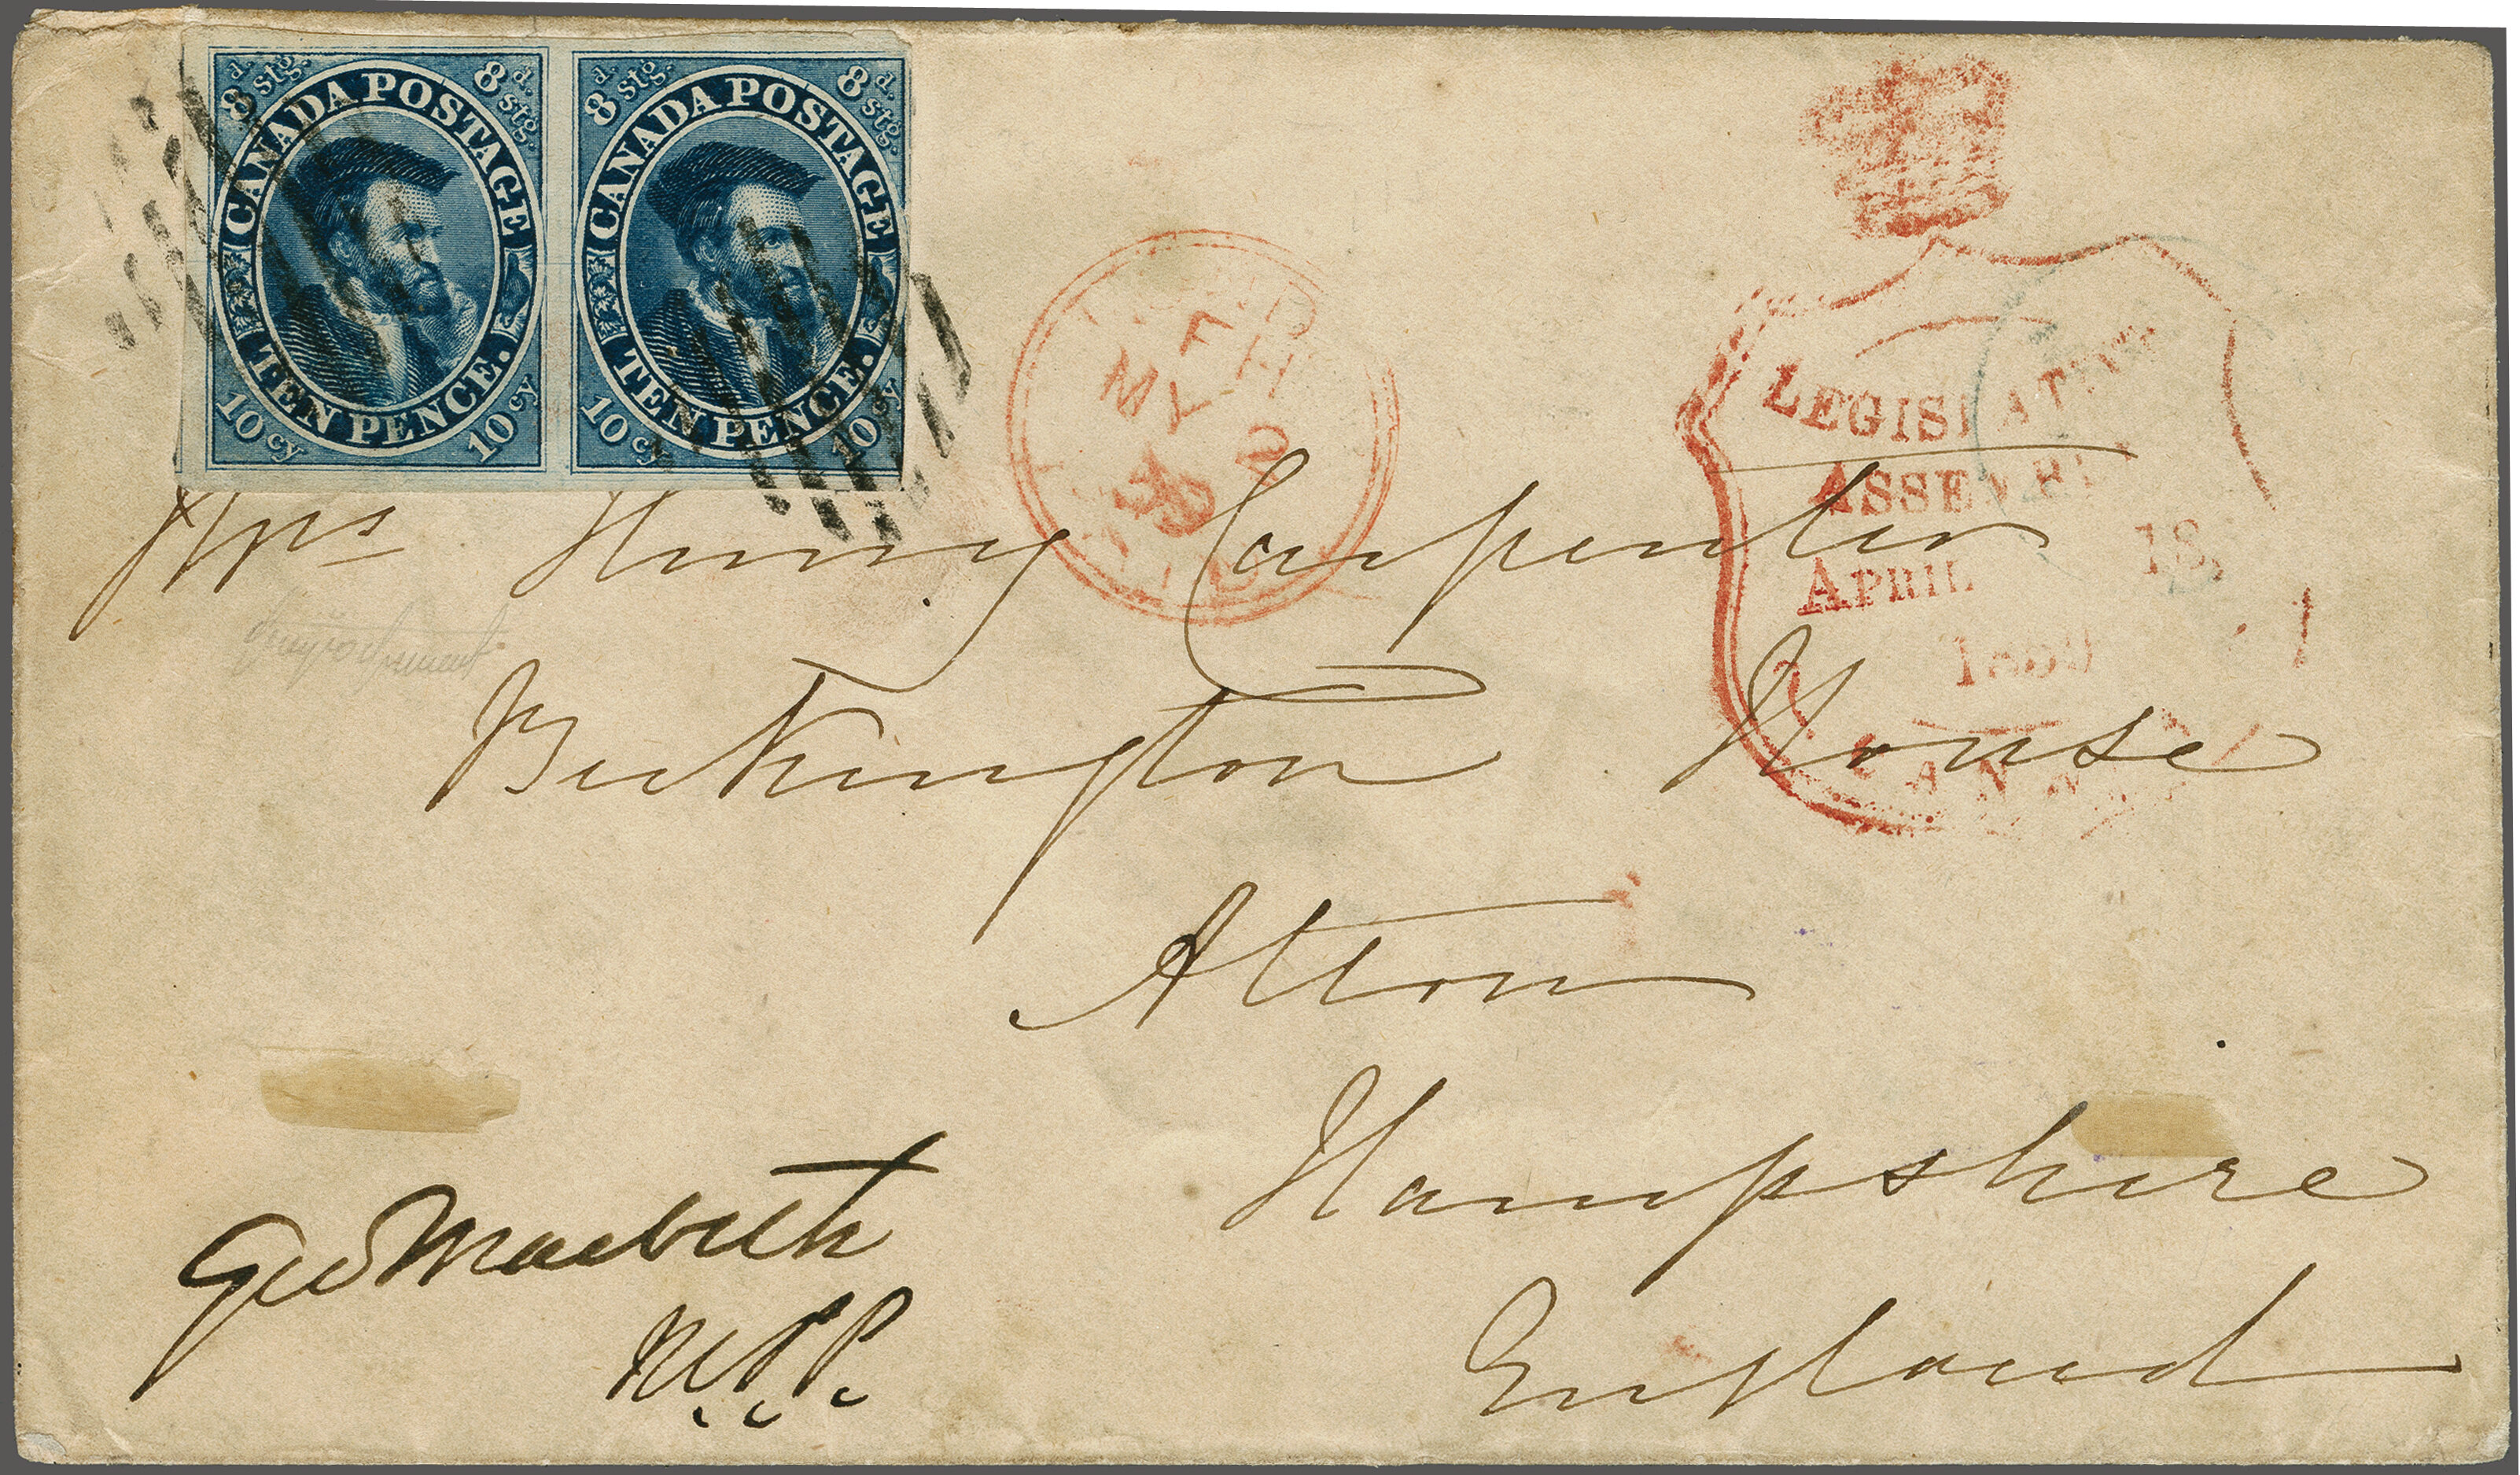 8d. stg. 8d. stg.
CANADA POSTAGE
TEN PENCE.
10 cy 10 cy
8d. stg. 8d. stg.
CANADA POSTAGE
TEN PENCE.
10 cy 10 cy
FH
MY 2
LEGISLATIVE
ASSEMBLY
APRIL 18,
CANA
Mrs Henry Carpenter
House
Alton
Hampshire
England
Geo Macbeth
M.P.P.